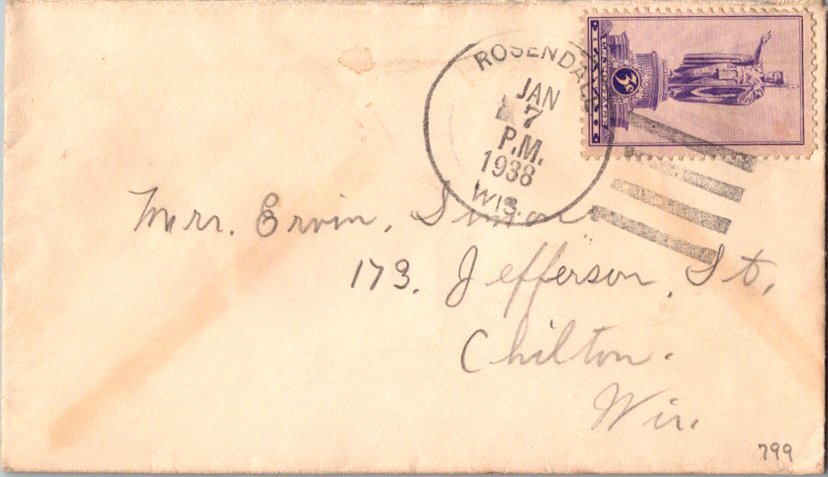 ROSENDALE
JAN
7
P.M.
1938
WIS.
HAWAII
3¢
Mrs. Ervin,
173. Jefferson, St,
Chilton.
Wis.
799